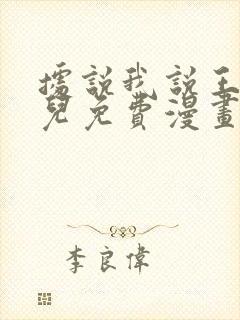 據說我說王
兒免費漫畫
李良偉